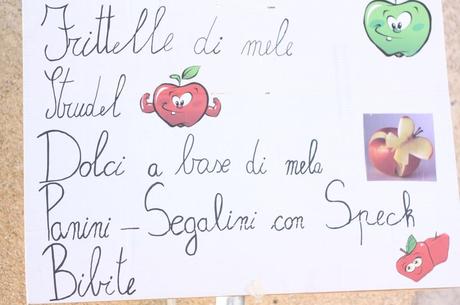 Frittelle di mele
Strudel
Dolci a base di mela
Panini - Segalini con Speck
Bibite